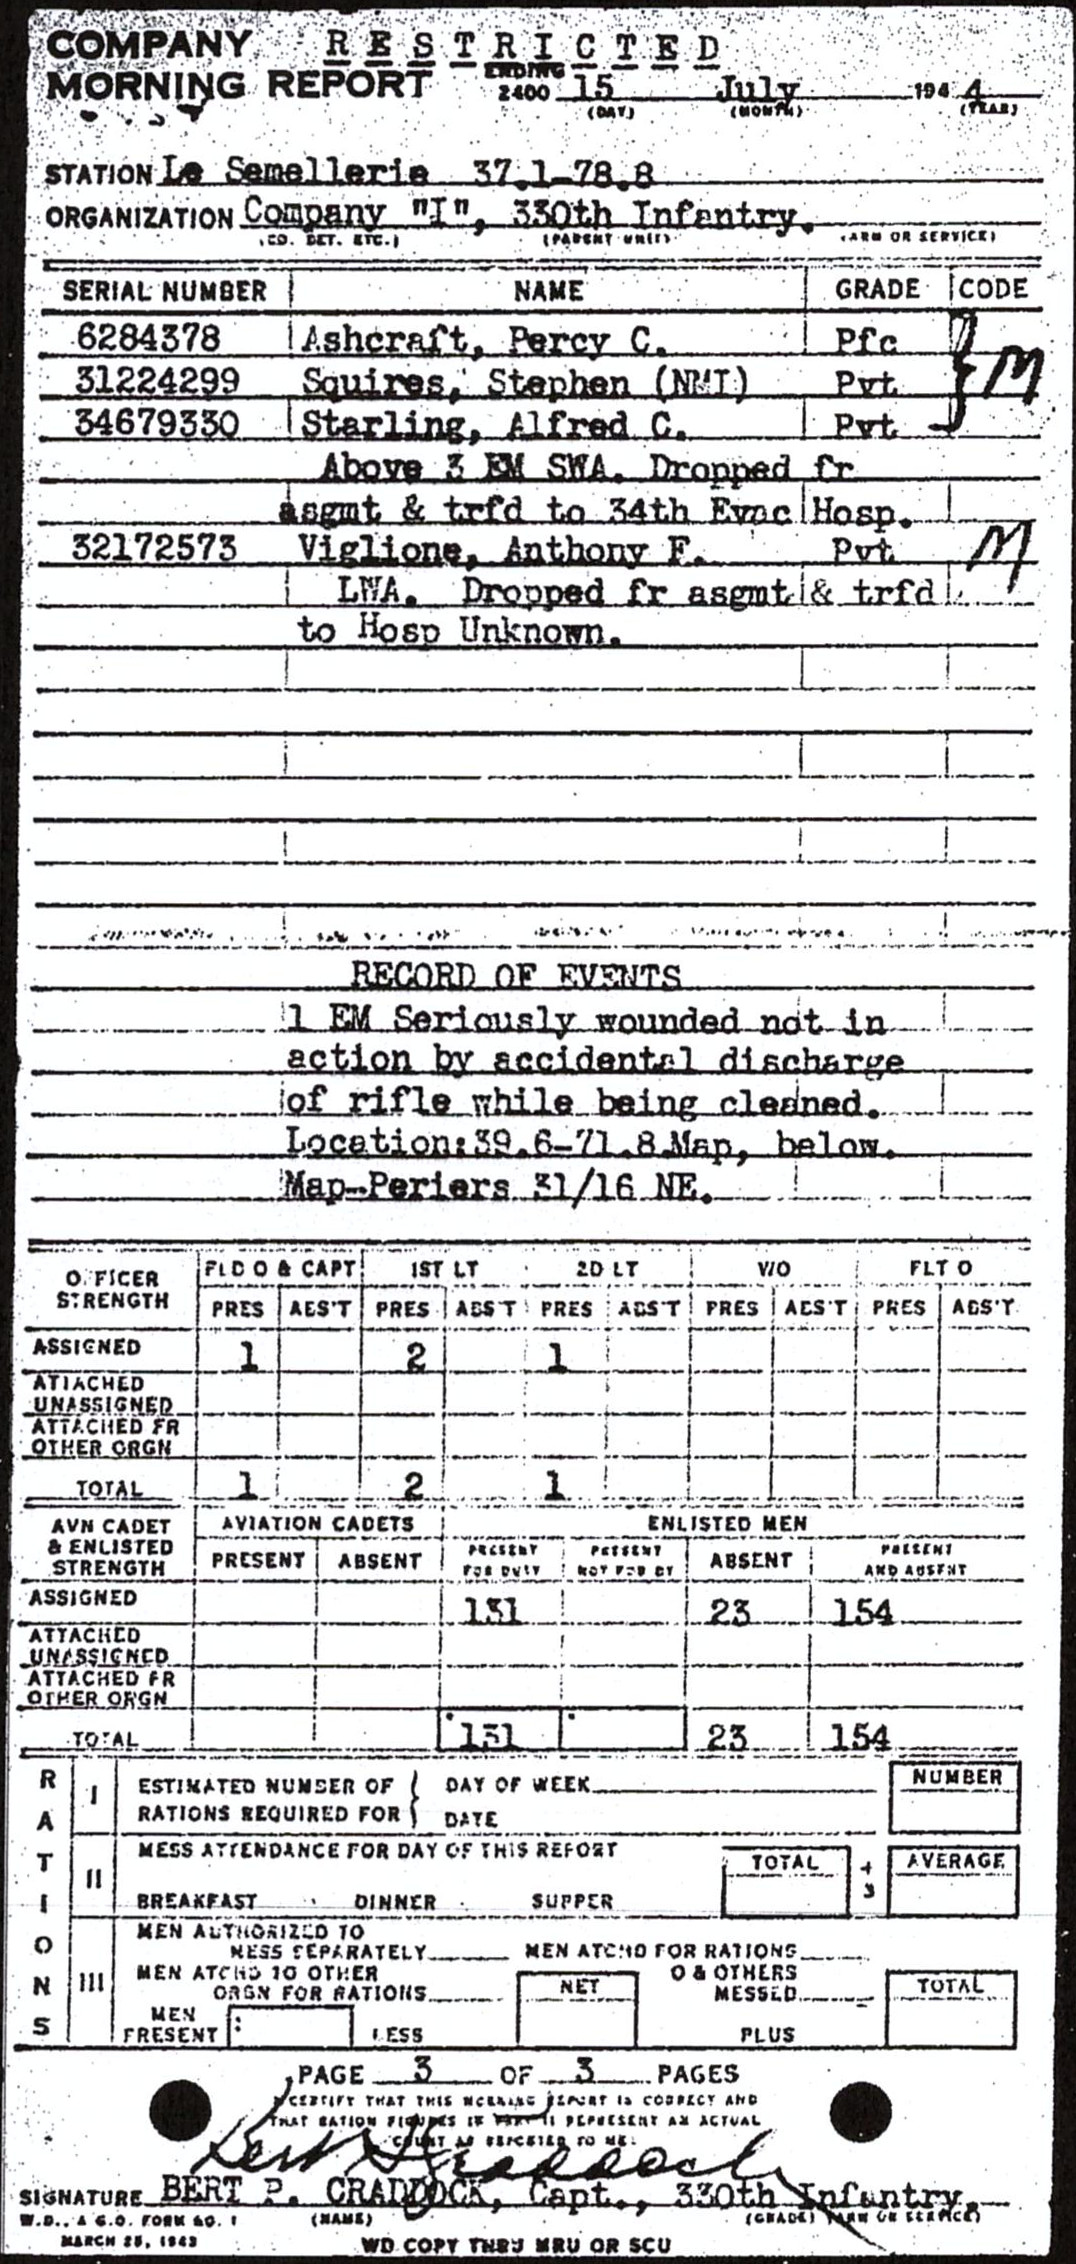 COMPANY RESTRICTED
MORNING REPORT ENDING 2400 15 July 1944
(DAY) (MONTH) (YEAR)
STATION Le Semellerie 37.1-78.8
ORGANIZATION Company "I", 330th Infantry.
(CO. DET. ETC.) (PARENT UNIT) (ARM OR SERVICE)
SERIAL NUMBER NAME GRADE CODE
6284378 Ashcraft, Percy C. Pfc
31224299 Squires, Stephen (NMI) Pvt } M
34679330 Starling, Alfred C. Pvt
Above 3 EM SWA. Dropped fr
asgmt & trfd to 34th Evac Hosp.
32172573 Viglione, Anthony F. Pvt M
LWA. Dropped fr asgmt & trfd
to Hosp Unknown.
RECORD OF EVENTS
1 EM Seriously wounded not in
action by accidental discharge
of rifle while being cleaned.
Location:39.6-71.8 Map, below.
Map-Periers 31/16 NE.
OFFICER STRENGTH FLD O & CAPT 1ST LT 2D LT W/O FLT O
PRES ABS'T PRES ABS'T PRES ABS'T PRES ABS'T PRES ABS'T
ASSIGNED 1 2 1
ATTACHED UNASSIGNED
ATTACHED FR OTHER ORGN
TOTAL 1 2 1
AVN CADET & ENLISTED STRENGTH AVIATION CADETS ENLISTED MEN
PRESENT ABSENT PRESENT FOR DUTY PRESENT NOT FOR DY ABSENT PRESENT AND ABSENT
ASSIGNED 131 23 154
ATTACHED UNASSIGNED
ATTACHED FR OTHER ORGN
TOTAL 131 23 154
RATIONS
I ESTIMATED NUMBER OF RATIONS REQUIRED FOR { DAY OF WEEK NUMBER
DATE
II MESS ATTENDANCE FOR DAY OF THIS REPORT TOTAL ÷ 3 AVERAGE
BREAKFAST DINNER SUPPER
III MEN AUTHORIZED TO MESS SEPARATELY MEN ATCHD FOR RATIONS
MEN ATCHD TO OTHER ORGN FOR RATIONS NET O & OTHERS MESSED TOTAL
MEN PRESENT LESS PLUS
PAGE 3 OF 3 PAGES
I CERTIFY THAT THIS MORNING REPORT IS CORRECT AND
THAT RATION FIGURES IN PART II REPRESENT AN ACTUAL
COUNT AS REPORTED TO ME:
Bert P. Craddock
SIGNATURE BERT P. CRADDOCK, Capt., 330th Infantry.
W.D., A.G.O. FORM NO. 1 (NAME) (GRADE) (ARM OR SERVICE)
MARCH 25, 1943 WD COPY THRU MRU OR SCU